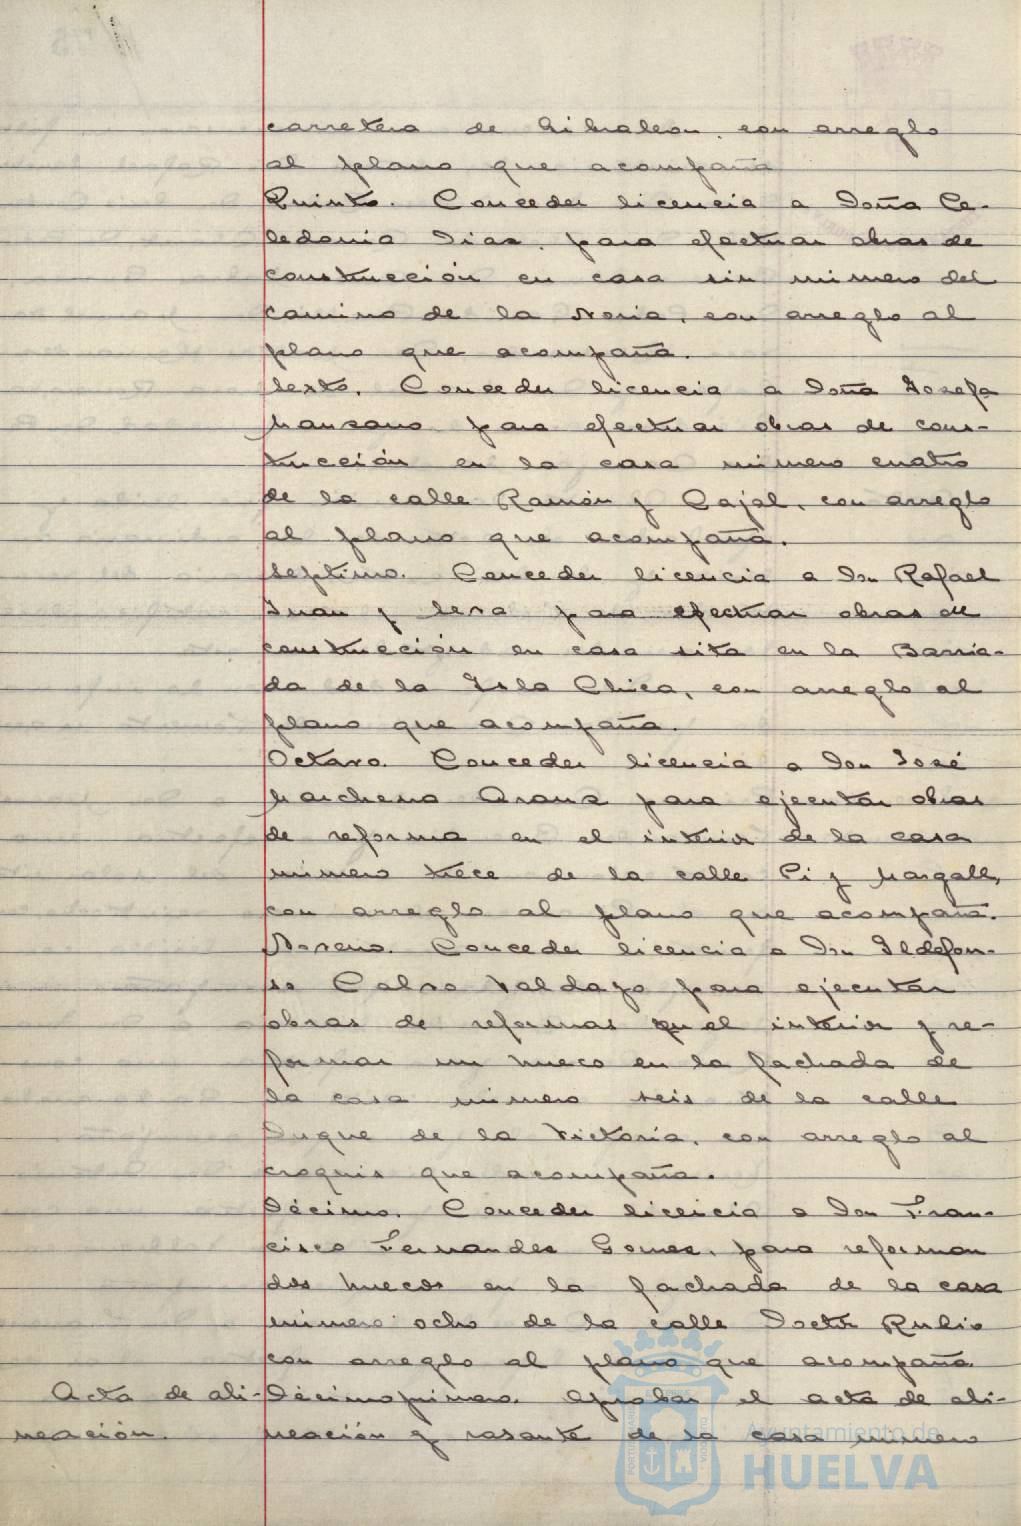 carretera de Gibraleon, con arreglo
al plano que acompaña
Quinto. Conceder licencia a Doña Ce-
ledonia Dias, para efectuar obras de
construcción en casa sin número del
camino de la Noria, con arreglo al
plano que acompaña.
Sexto. Conceder licencia a Doña Josefa
Manzano para efectuar obras de cons-
trucción en la casa número cuatro
de la calle Ramón y Cajal, con arreglo
al plano que acompaña.
Septimo. Conceder licencia a Don Rafael
Juan y para efectuar obras de
construcción en casa sita en la Barria-
da de la Isla Chica, con arreglo al
plano que acompaña.
Octavo. Conceder licencia a Don José
Marchena Arana para ejecutar obras
de reforma en el interior de la casa
número trece de la calle Pi y Margall,
con arreglo al plano que acompaña.
Noveno. Conceder licencia a Don Ildefon-
so Calvo Valdayo para ejecutar
obras de reformas en el interior y re-
formar un hueco en la fachada de
la casa número seis de la calle
Duque de la Victoria, con arreglo al
croquis que acompaña.
Décimo. Conceder licencia a Don Fran-
cisco Fernandez Gomez, para reforman
dos huecos en la fachada de la casa
número ocho de la calle Doctor Rubio
con arreglo al plano que acompaña
Acta de ali-
neación.
Décimoprimero. Aprobar el acta de ali-
neación y rasante de la casa número
Ayuntamiento de
HUELVA